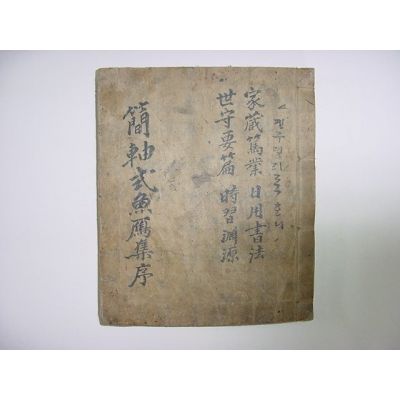 家藏篤業 日用書法
世守要篇 時習淵源
簡軸式魚鴈集序